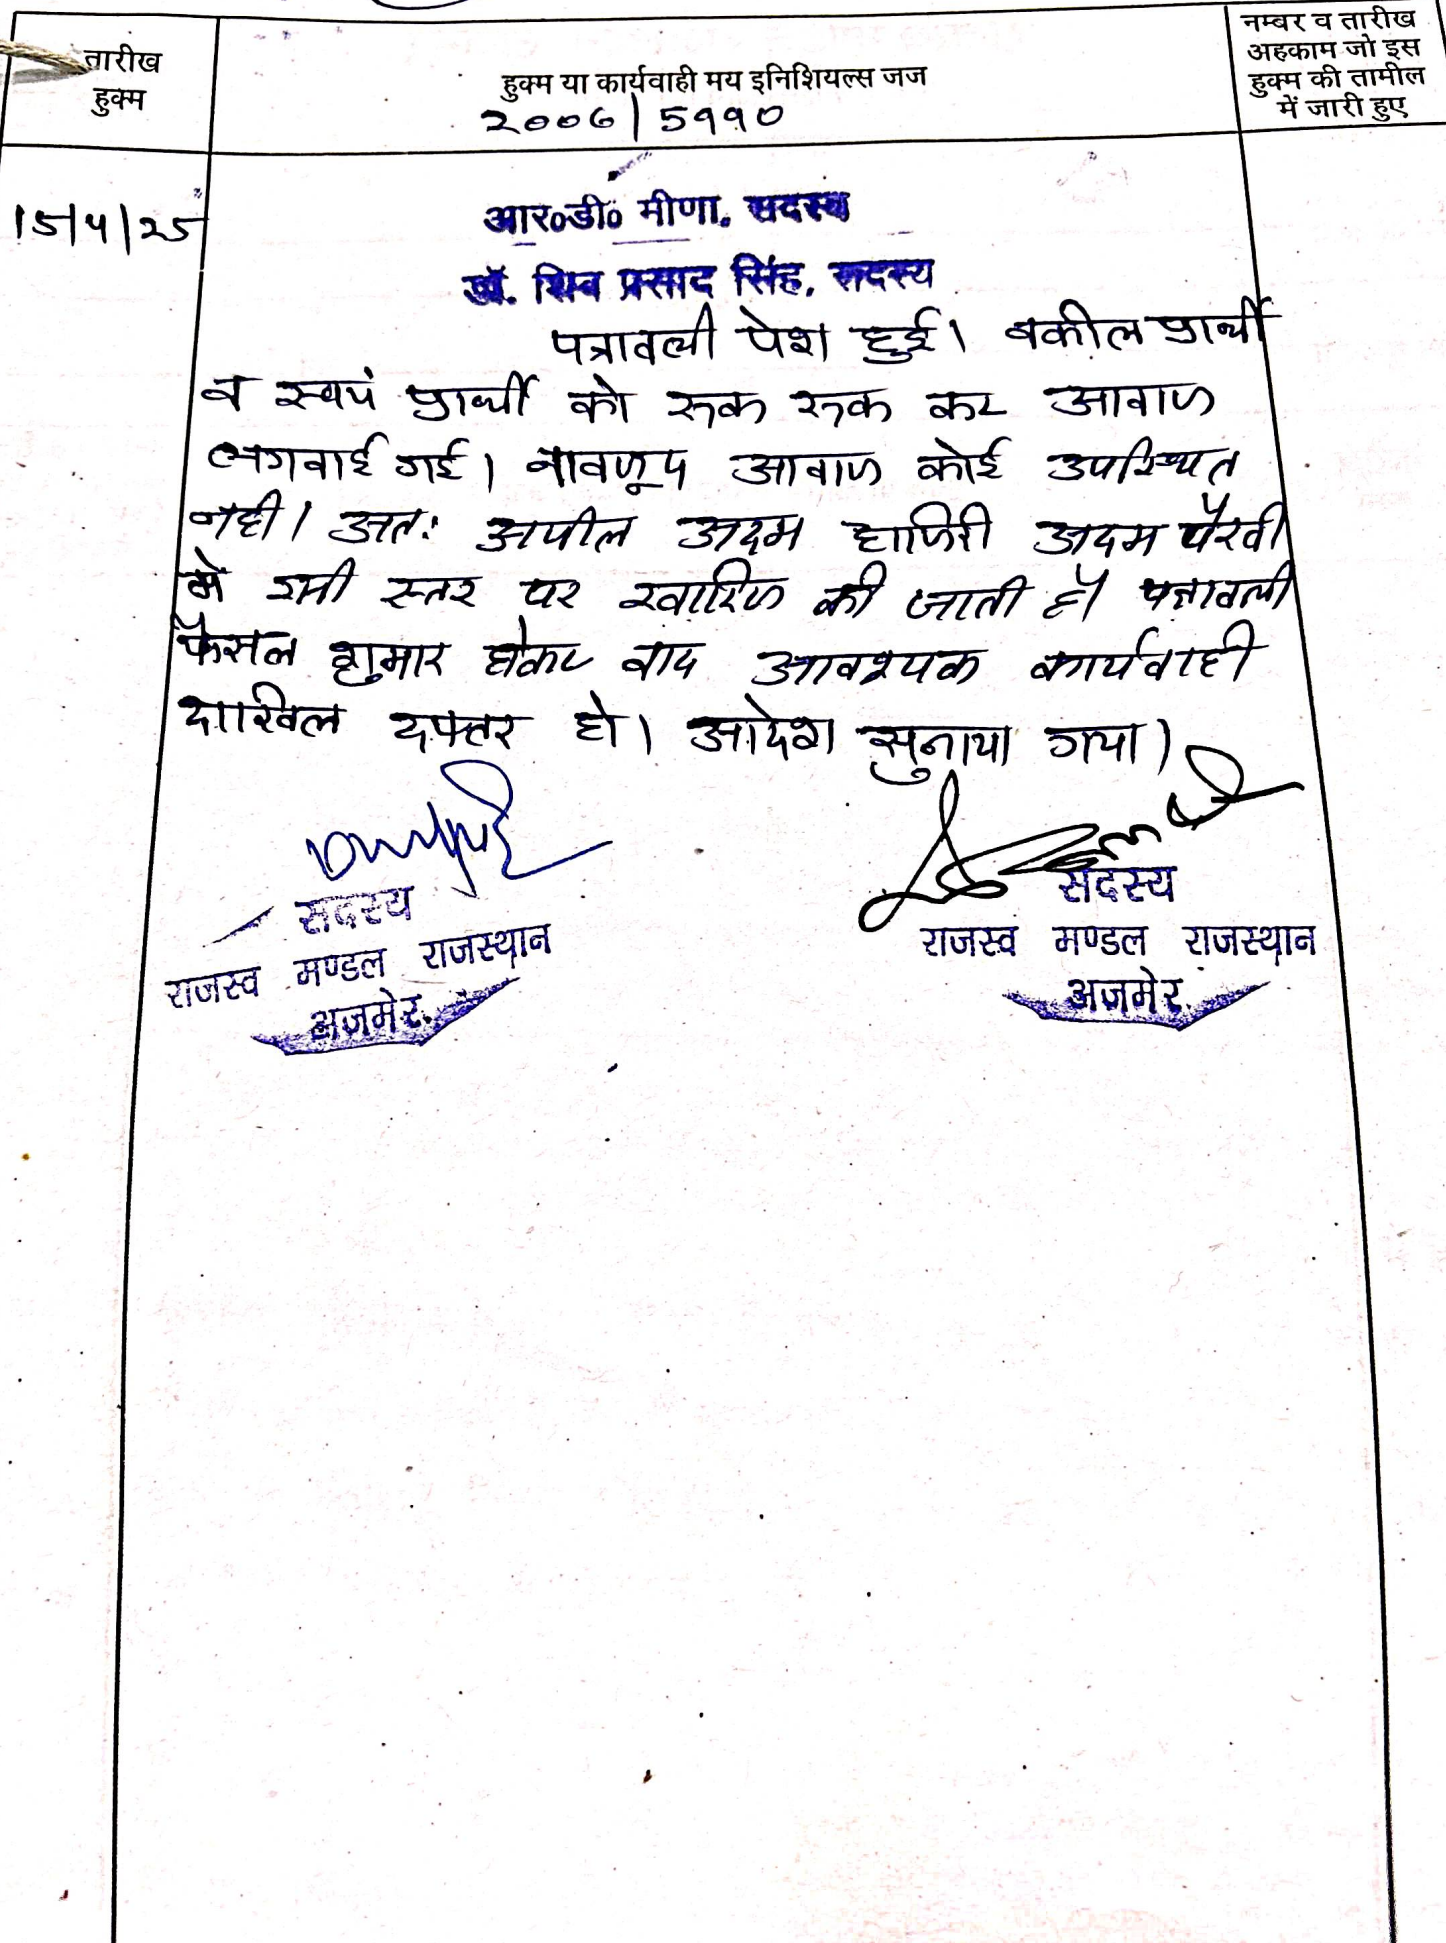 तारीख
हुक्म
हुक्म या कार्यवाही मय इनिशियल्स जज
2006/5990
नम्बर व तारीख
अहकाम जो इस
हुक्म की तामील
में जारी हुए
15/4/25
आर०डी० मीणा. सदस्य
डॉ. शिव प्रसाद सिंह. सदस्य
पत्रावली पेश हुई। वकील प्रार्थी
व स्वयं प्रार्थी को रुक रुक कर आवाज
लगवाई गई। बावजूद आवाज कोई उपस्थित
नही। अतः अपील अदम हाजिरी अदम पैरवी
मे इसी स्तर पर खारिज की जाती है। पत्रावली
फैसल शुमार होकर बाद आवश्यक कार्यवाही
दाखिल दफ्तर हो। आदेश सुनाया गया।
सदस्य
राजस्व मण्डल राजस्थान
अजमेर.
सदस्य
राजस्व मण्डल राजस्थान
अजमेर.